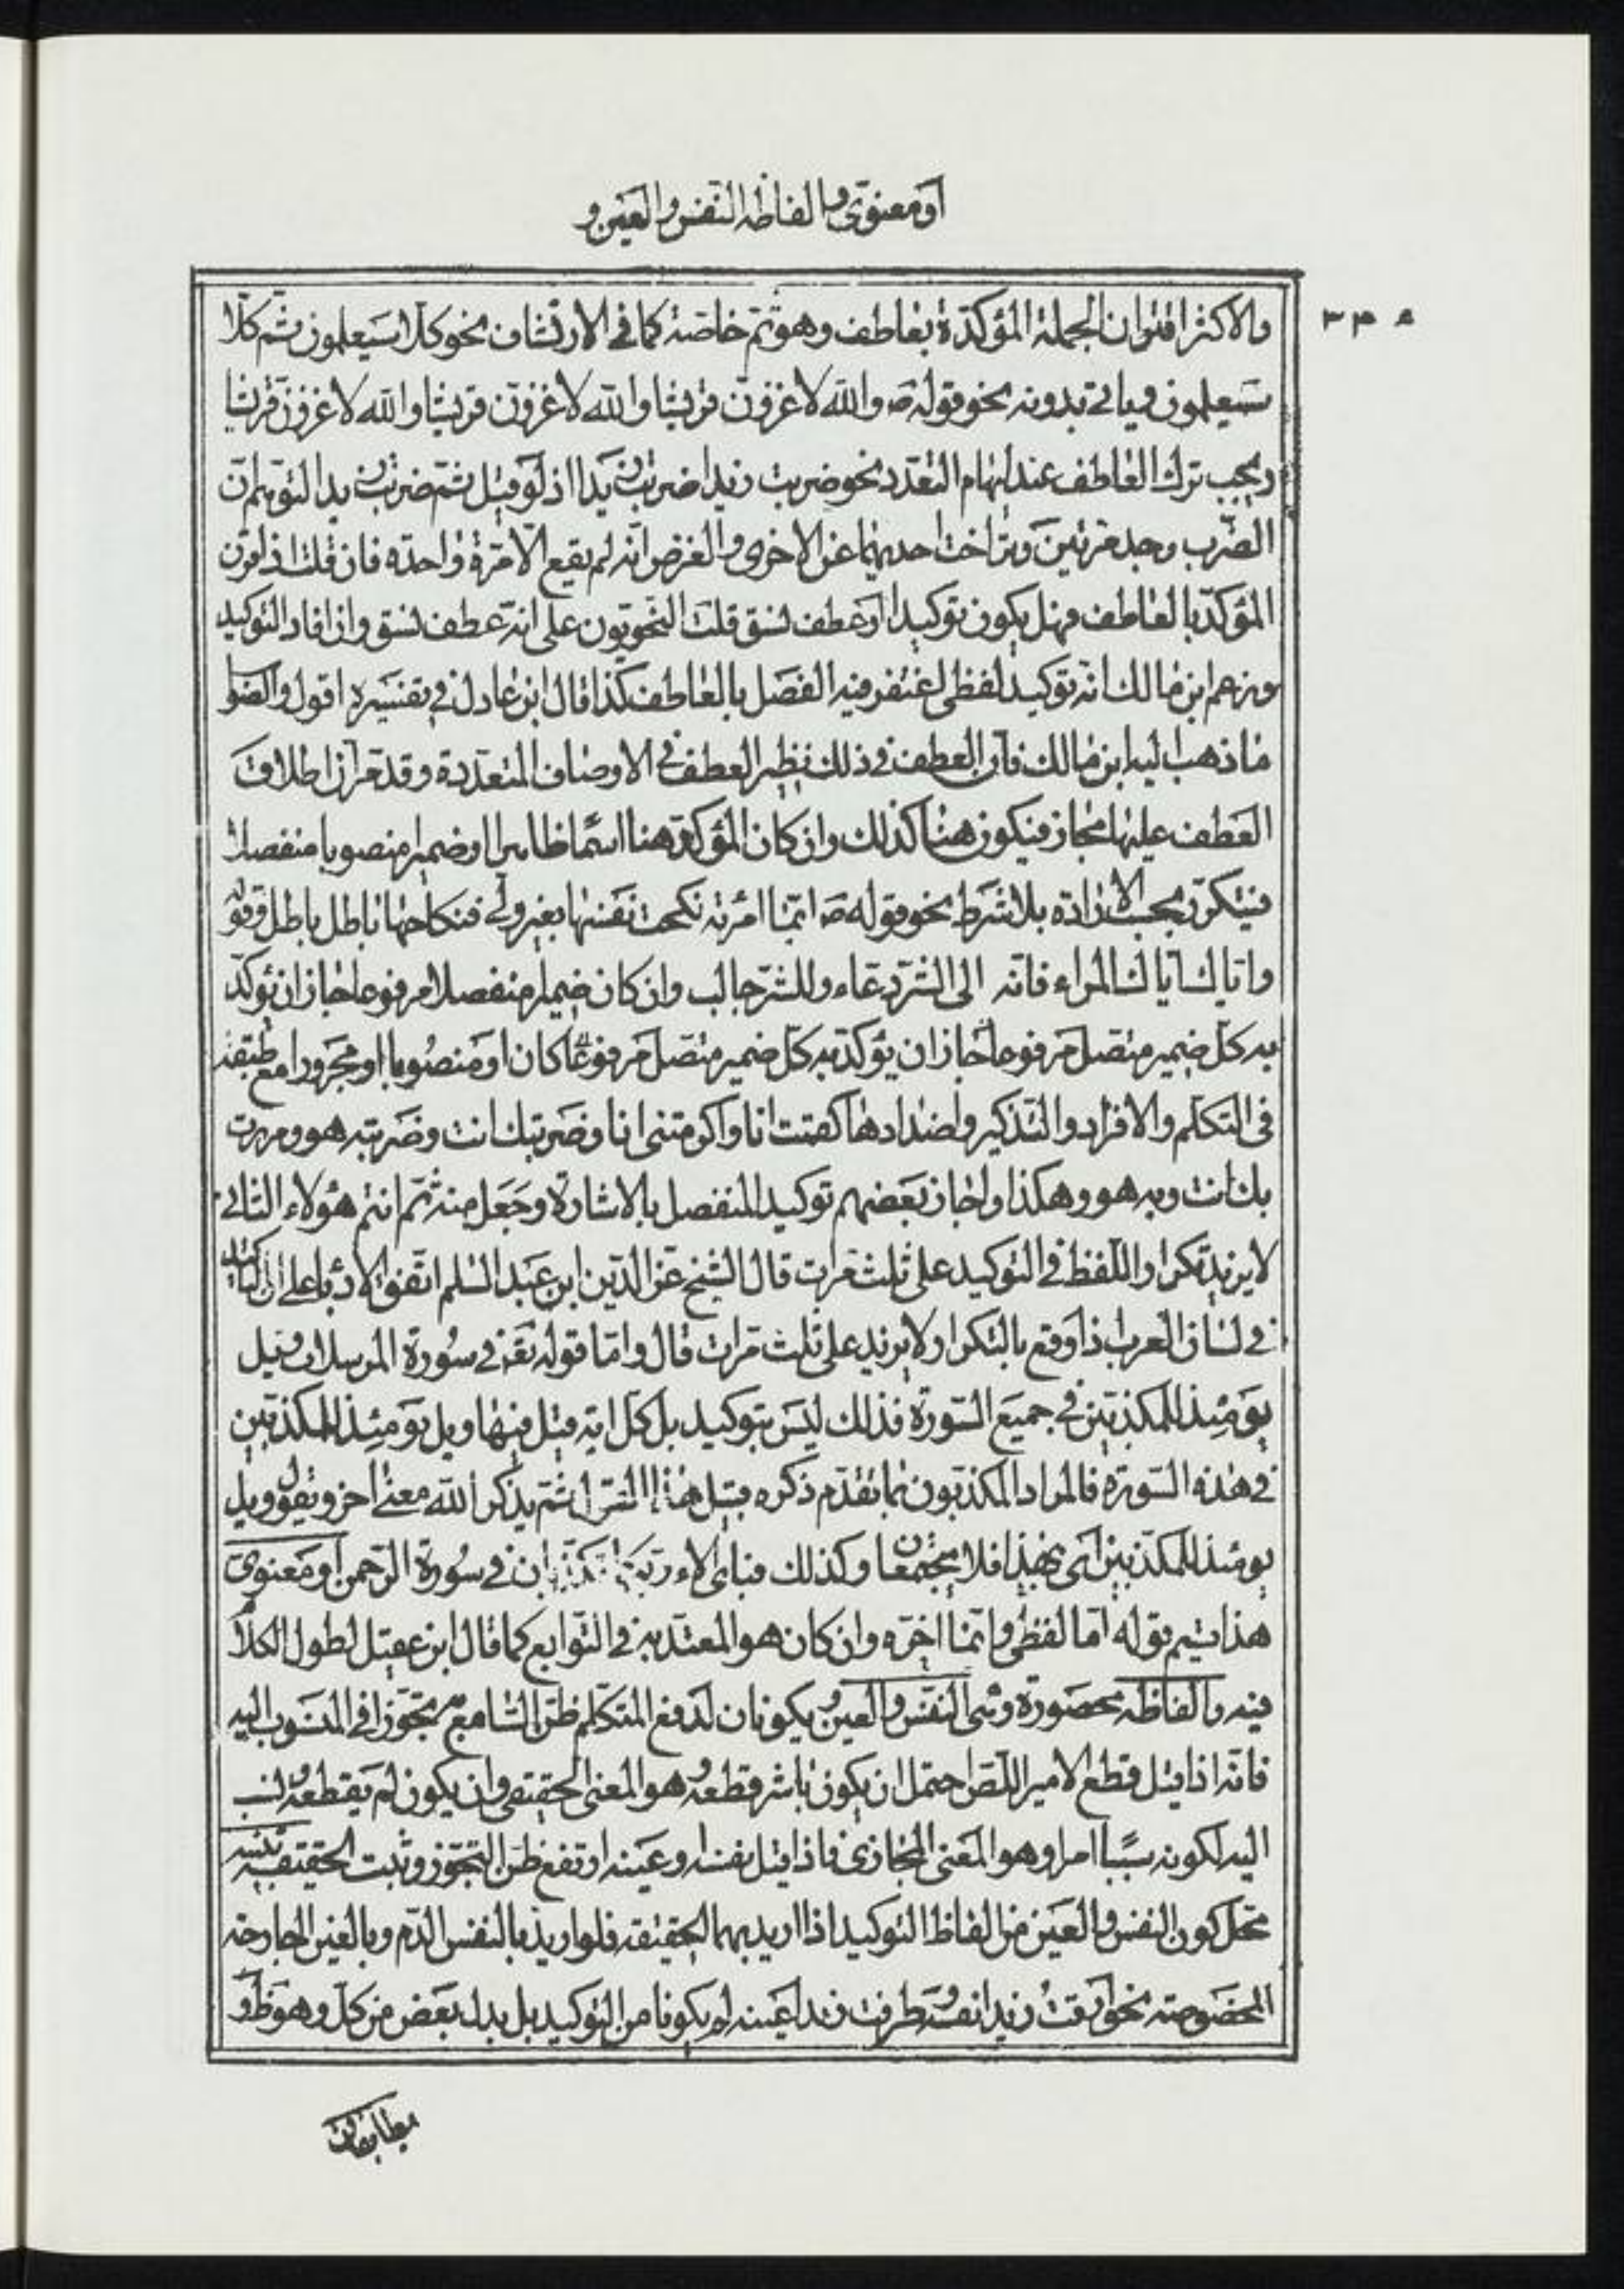 او معنوي والفاظه النفس والعين و
٣٣٥
والاكثر اقتران الجملة المؤكدة بعاطف وهو ثم خاصة كما في الارتشاف نحو كلا سيعلمون ثم كلا
سيعلمون وياتي بدونه نحو قوله ص والله لاغزون قريشا والله لاغزون قريشا والله لاغزون قريشا
ويجب ترك العاطف عند ايهام التعدد نحو ضربت زيدا ضربت زيدا اذ لو قيل ثم ضربت زيدا لتوهم ان
الضرب وجد مرتين وتراخت احديهما عن الاخرى والغرض انه لم يقع الا مرة واحدة فان قلت اذا قرن
المؤكد بالعاطف فهل يكون توكيدا او عطف نسق قلت النحويون على انه عطف نسق وان افاد التوكيد
وزعم ابن مالك انه توكيد لفظي اغتفر فيه الفصل بالعاطف كذا قال ابن عادل في تفسيره اقول والصوا
ما ذهب اليه ابن مالك فان العطف في ذلك نظير العطف في الاوصاف المتعددة وقد مر ان اطلاق
العطف عليها مجاز فيكون هنا كذلك وان كان المؤكد هنا اسما ظاهرا او ضميرا منصوبا منفصلا
فيتكرر بحسب الارادة بلا شرط نحو قوله ص ايما امرئة نكحت نفسها بغير ولي فنكاحها باطل باطل وقوله
واياك اياك المراء فانه الى الشر دعاء وللشر جالب وان كان ضميرا منفصلا مرفوعا جاز ان يؤكد
به كل ضمير متصل مرفوعا جاز ان يؤكد به كل ضمير متصل مرفوعا كان او منصوبا او مجرورا مع طبقه
في التكلم والافراد والتذكير واضدادها كقمت انا واكرمتني انا وضربتك انت وضربته هو ومررت
بك انت وبه هو وهكذا واجاز بعضهم توكيد المنفصل بالاشارة وجعل منه ثم انتم هؤلاء الثاني
لا يزيد تكرار اللفظ في التوكيد على ثلث مرات قال الشيخ عز الدين ابن عبد السلم اتفق الادباء على ان التاكيد
في لسان العرب اذا وقع بالتكرار لا يزيد على ثلث مرات قال واما قوله تع في سورة المرسلات ويل
يومئذ للمكذبين في جميع السورة فذلك ليس بتوكيد بل كل اية قيل فيها ويل يومئذ للمكذبين
في هذه السورة فالمراد المكذبون بما تقدم ذكره قبيل هذا القول ثم يذكر الله معنى اخر ويقول ويل
يومئذ للمكذبين اي بهذا فلا يجتمعان وكذلك فباي الاء ربكما تكذبان في سورة الرحمن او معنوي
هذا قسيم قوله اما لفظي وانما اخره وان كان هو المعتد به في التوابع كما قال ابن عقيل لطول الكلا
فيه والفاظه محصورة وهي النفس والعين ويكونان لدفع المتكلم ظن السامع تجوزا في المنسوب اليه
فانه اذا قيل قطع الامير اللص احتمل ان يكون باشر قطعه وهو المعنى الحقيقي وان يكون لم يقطعه ونسب
اليه لكونه سببا امرا وهو المعنى المجازي فاذا قيل نفسه او عينه ارتفع ظن التجوز وثبت الحقيقة تنبيه
محل كون النفس والعين من الفاظ التوكيد اذا اريد بهما الحقيقة فلو اريد بالنفس الدم وبالعين الجارحة
المخصوصة نحو ارقت زيدا نفسه وطرفت زيدا عينه لم يكونا من التوكيد بل بدل بعض من كل وهو ظ و
يطابقان